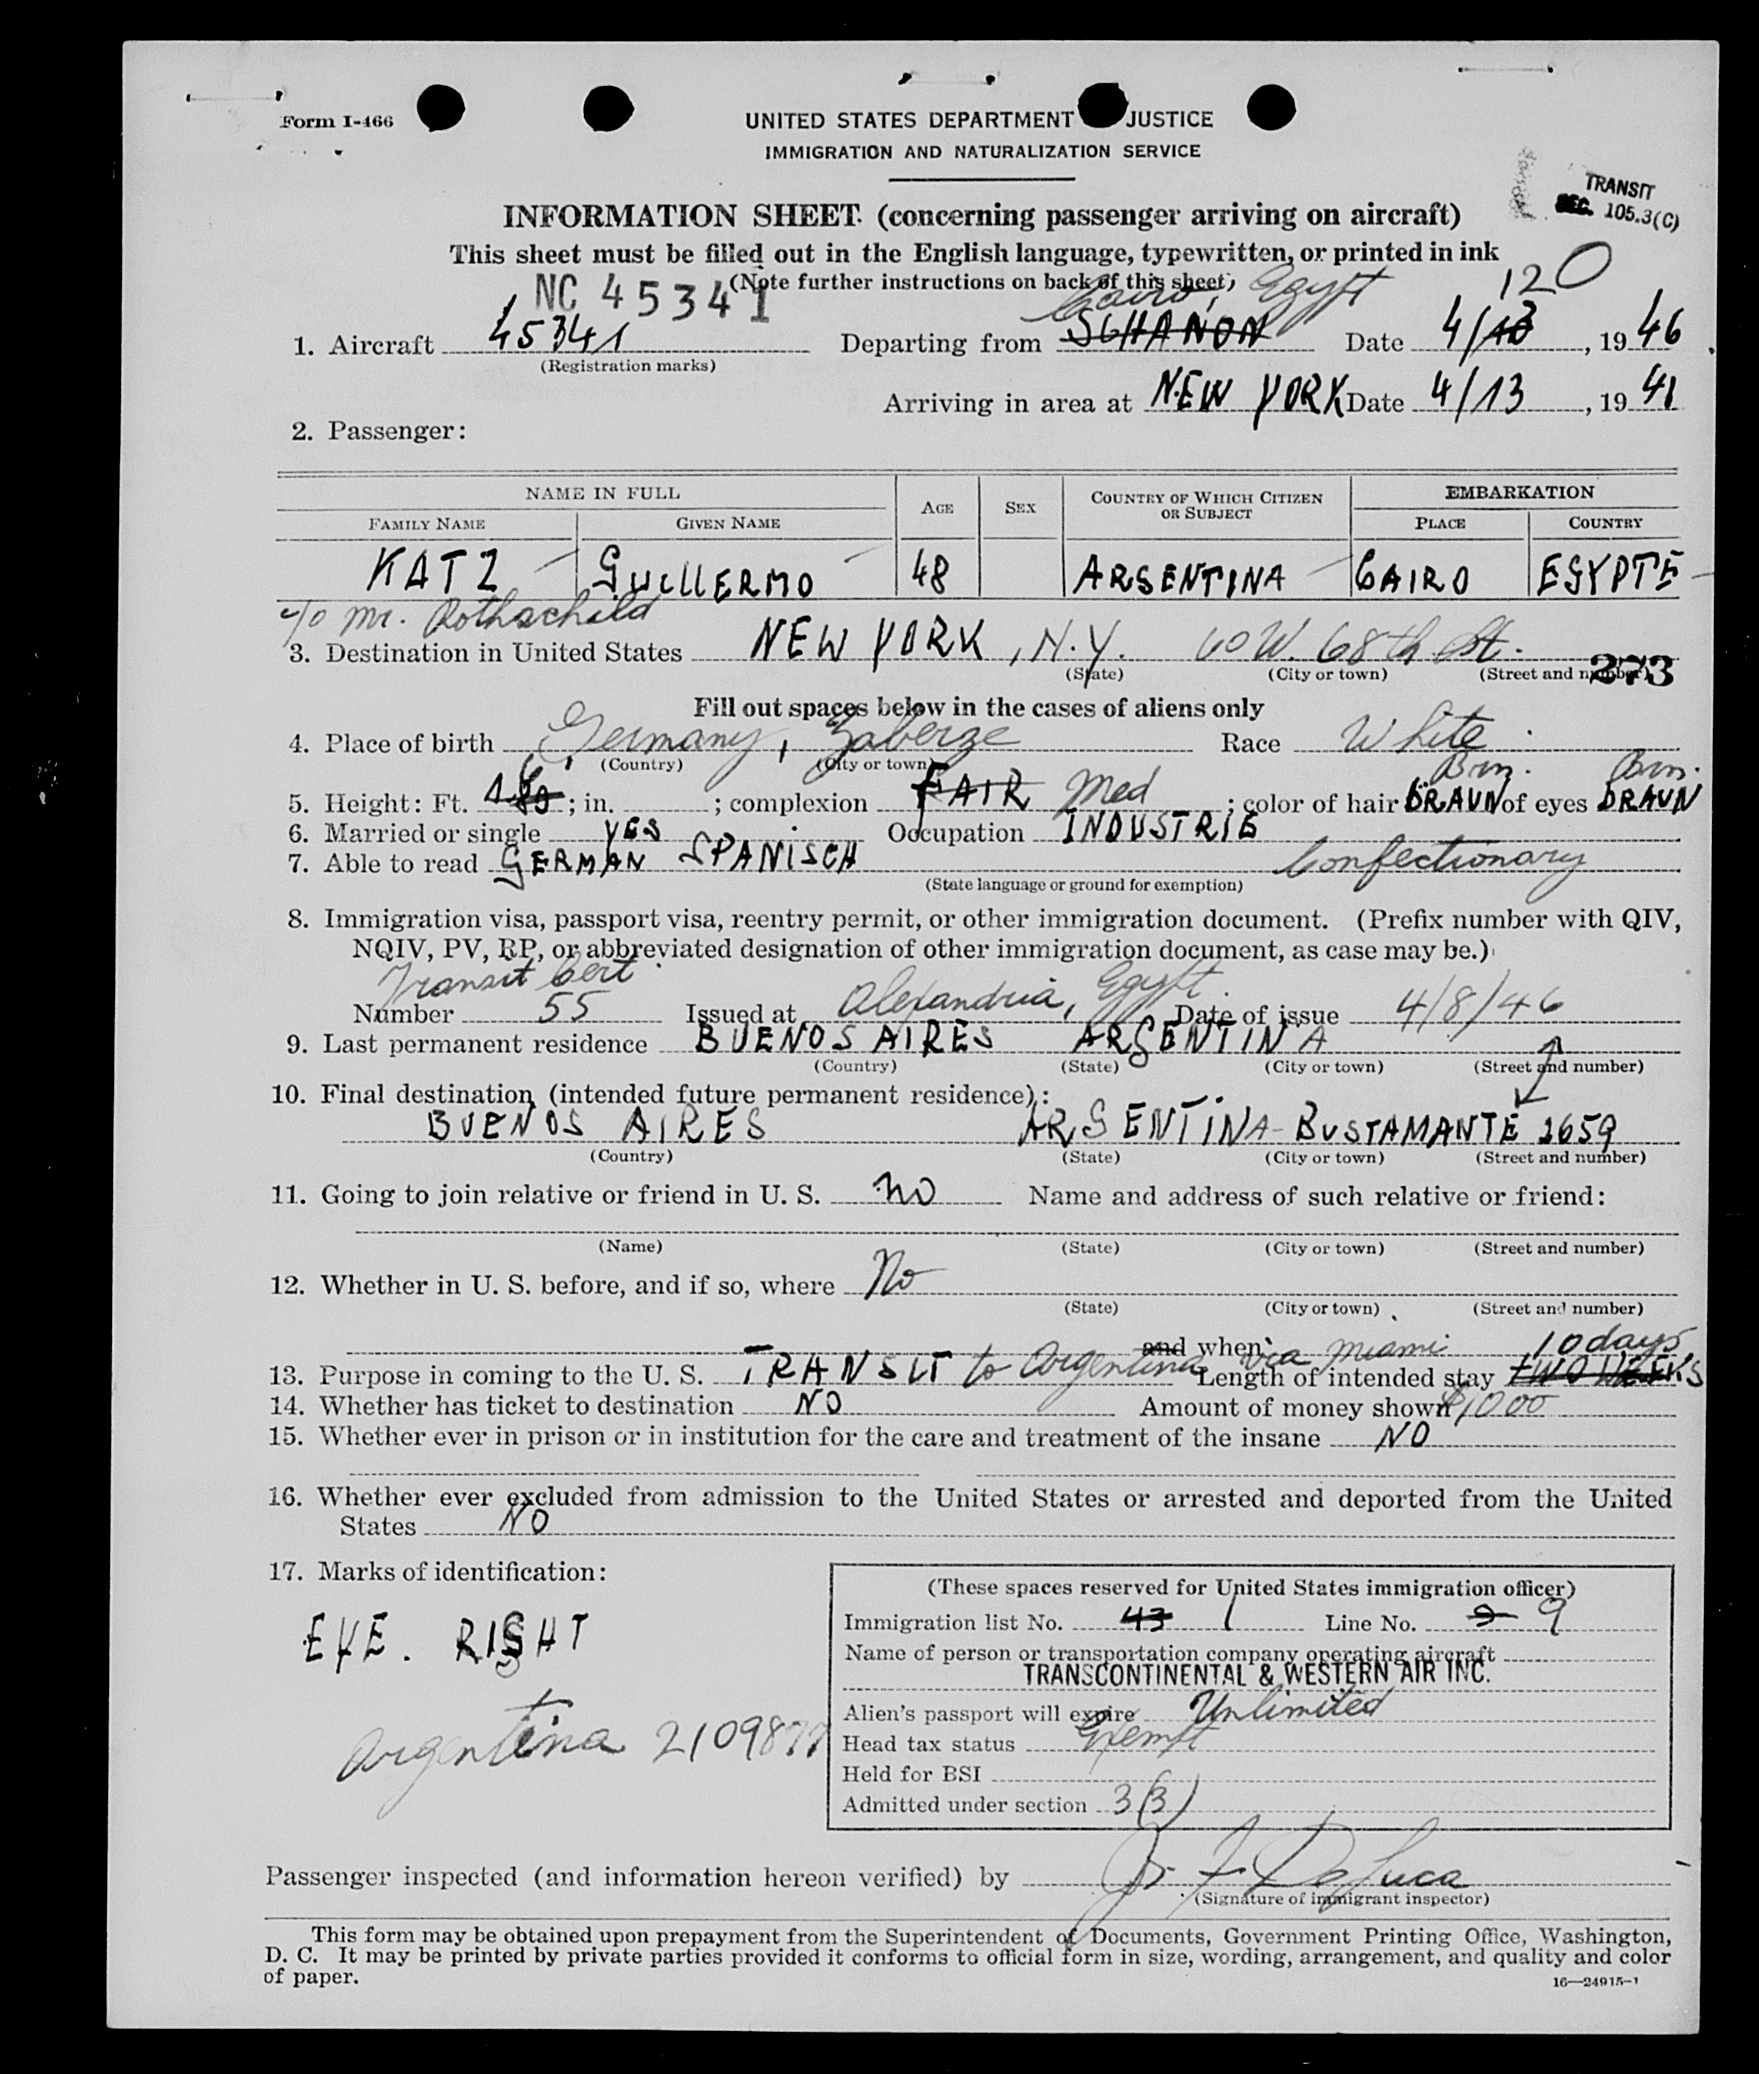 Form I-466
UNITED STATES DEPARTMENT JUSTICE
IMMIGRATION AND NATURALIZATION SERVICE
TRANSIT
SEC. 105.3(C)
INFORMATION SHEET (concerning passenger arriving on aircraft)
This sheet must be filled out in the English language, typewritten, or printed in ink
(Note further instructions on back of this sheet)
NC 45341
Cairo, Egypt
120
1. Aircraft 45341 Departing from SCHANON Date 4/13, 1946
(Registration marks)
Arriving in area at NEW YORK Date 4/13, 1941
2. Passenger:
NAME IN FULL AGE SEX COUNTRY OF WHICH CITIZEN OR SUBJECT EMBARKATION
FAMILY NAME GIVEN NAME PLACE COUNTRY
KATZ GUILLERMO 48 ARGENTINA CAIRO EGYPTE
c/o Mr. Rothschild
3. Destination in United States NEW YORK, N.Y. 60 W. 68th St.
(State) (City or town) (Street and number)
273
Fill out spaces below in the cases of aliens only
4. Place of birth Germany, Zaberze Race White
(Country) (City or town)
Brn. Brn.
5. Height: Ft. ; in. ; complexion FAIR Med ; color of hair BRAUN of eyes BRAUN
6. Married or single YES Occupation INDUSTRIE
7. Able to read GERMAN SPANISCH Confectionary
(State language or ground for exemption)
8. Immigration visa, passport visa, reentry permit, or other immigration document. (Prefix number with QIV,
NQIV, PV, RP, or abbreviated designation of other immigration document, as case may be.)
Transit Cert.
Number 55 Issued at Alexandria, Egypt Date of issue 4/8/46
9. Last permanent residence BUENOS AIRES ARGENTINA
(Country) (State) (City or town) (Street and number)
10. Final destination (intended future permanent residence):
BUENOS AIRES ARGENTINA - BUSTAMANTE 2659
(Country) (State) (City or town) (Street and number)
11. Going to join relative or friend in U. S. no Name and address of such relative or friend:
(Name) (State) (City or town) (Street and number)
12. Whether in U. S. before, and if so, where No
(State) (City or town) (Street and number)
and when
10 days
13. Purpose in coming to the U. S. TRANSIT to Argentina via Miami Length of intended stay TWO WEEKS
14. Whether has ticket to destination NO Amount of money shown $1000
15. Whether ever in prison or in institution for the care and treatment of the insane NO
16. Whether ever excluded from admission to the United States or arrested and deported from the United
States NO
17. Marks of identification:
EYE. RIGHT
Argentina 2109877
(These spaces reserved for United States immigration officer)
Immigration list No. 43 1 Line No. 9 9
Name of person or transportation company operating aircraft
TRANSCONTINENTAL & WESTERN AIR INC.
Alien's passport will expire Unlimited
Head tax status Exempt
Held for BSI
Admitted under section 3(3)
Passenger inspected (and information hereon verified) by J. F. DeLuca
(Signature of immigrant inspector)
This form may be obtained upon prepayment from the Superintendent of Documents, Government Printing Office, Washington,
D. C. It may be printed by private parties provided it conforms to official form in size, wording, arrangement, and quality and color
of paper.
16—24915-1